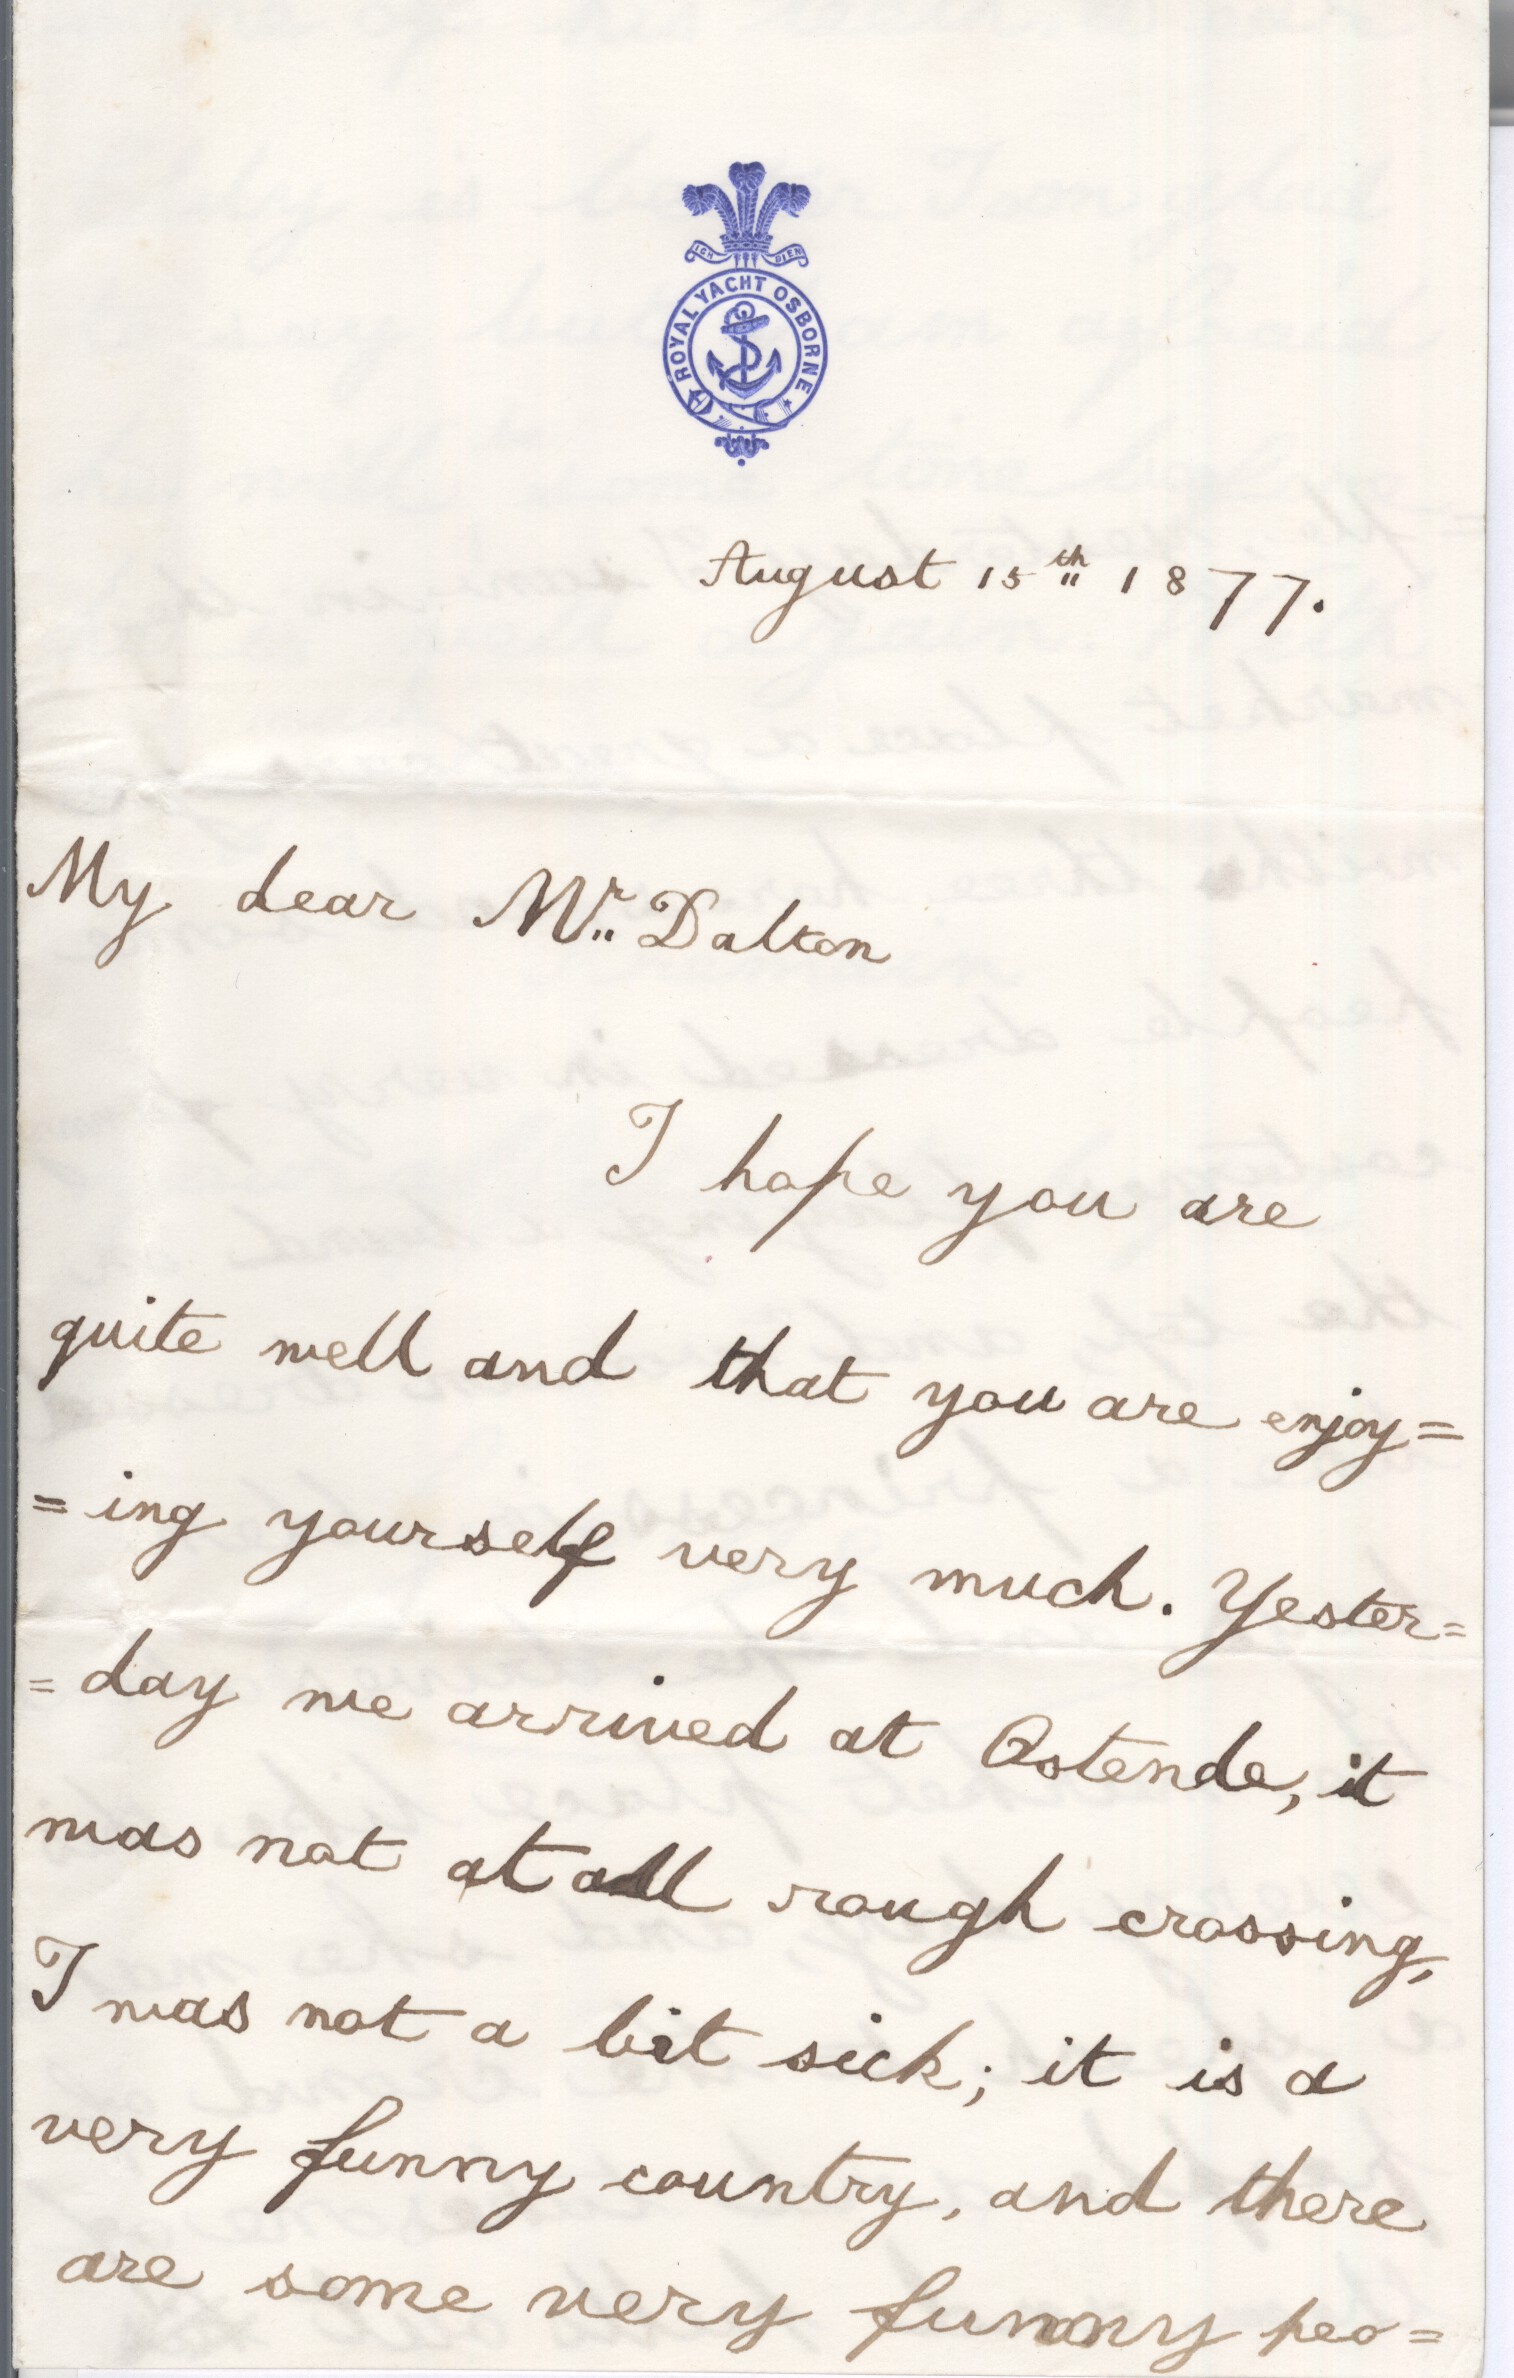 ICH DIEN
ROYAL YACHT OSBORNE
August 15th 1877.
My dear Mr Dalton
I hope you are
quite well and that you are enjoy=
=ing yourself very much. Yester=
=day we arrived at Ostende, it
was not at all rough crossing,
I was not a bit sick; it is a
very funny country, and there
are some very funny peo=